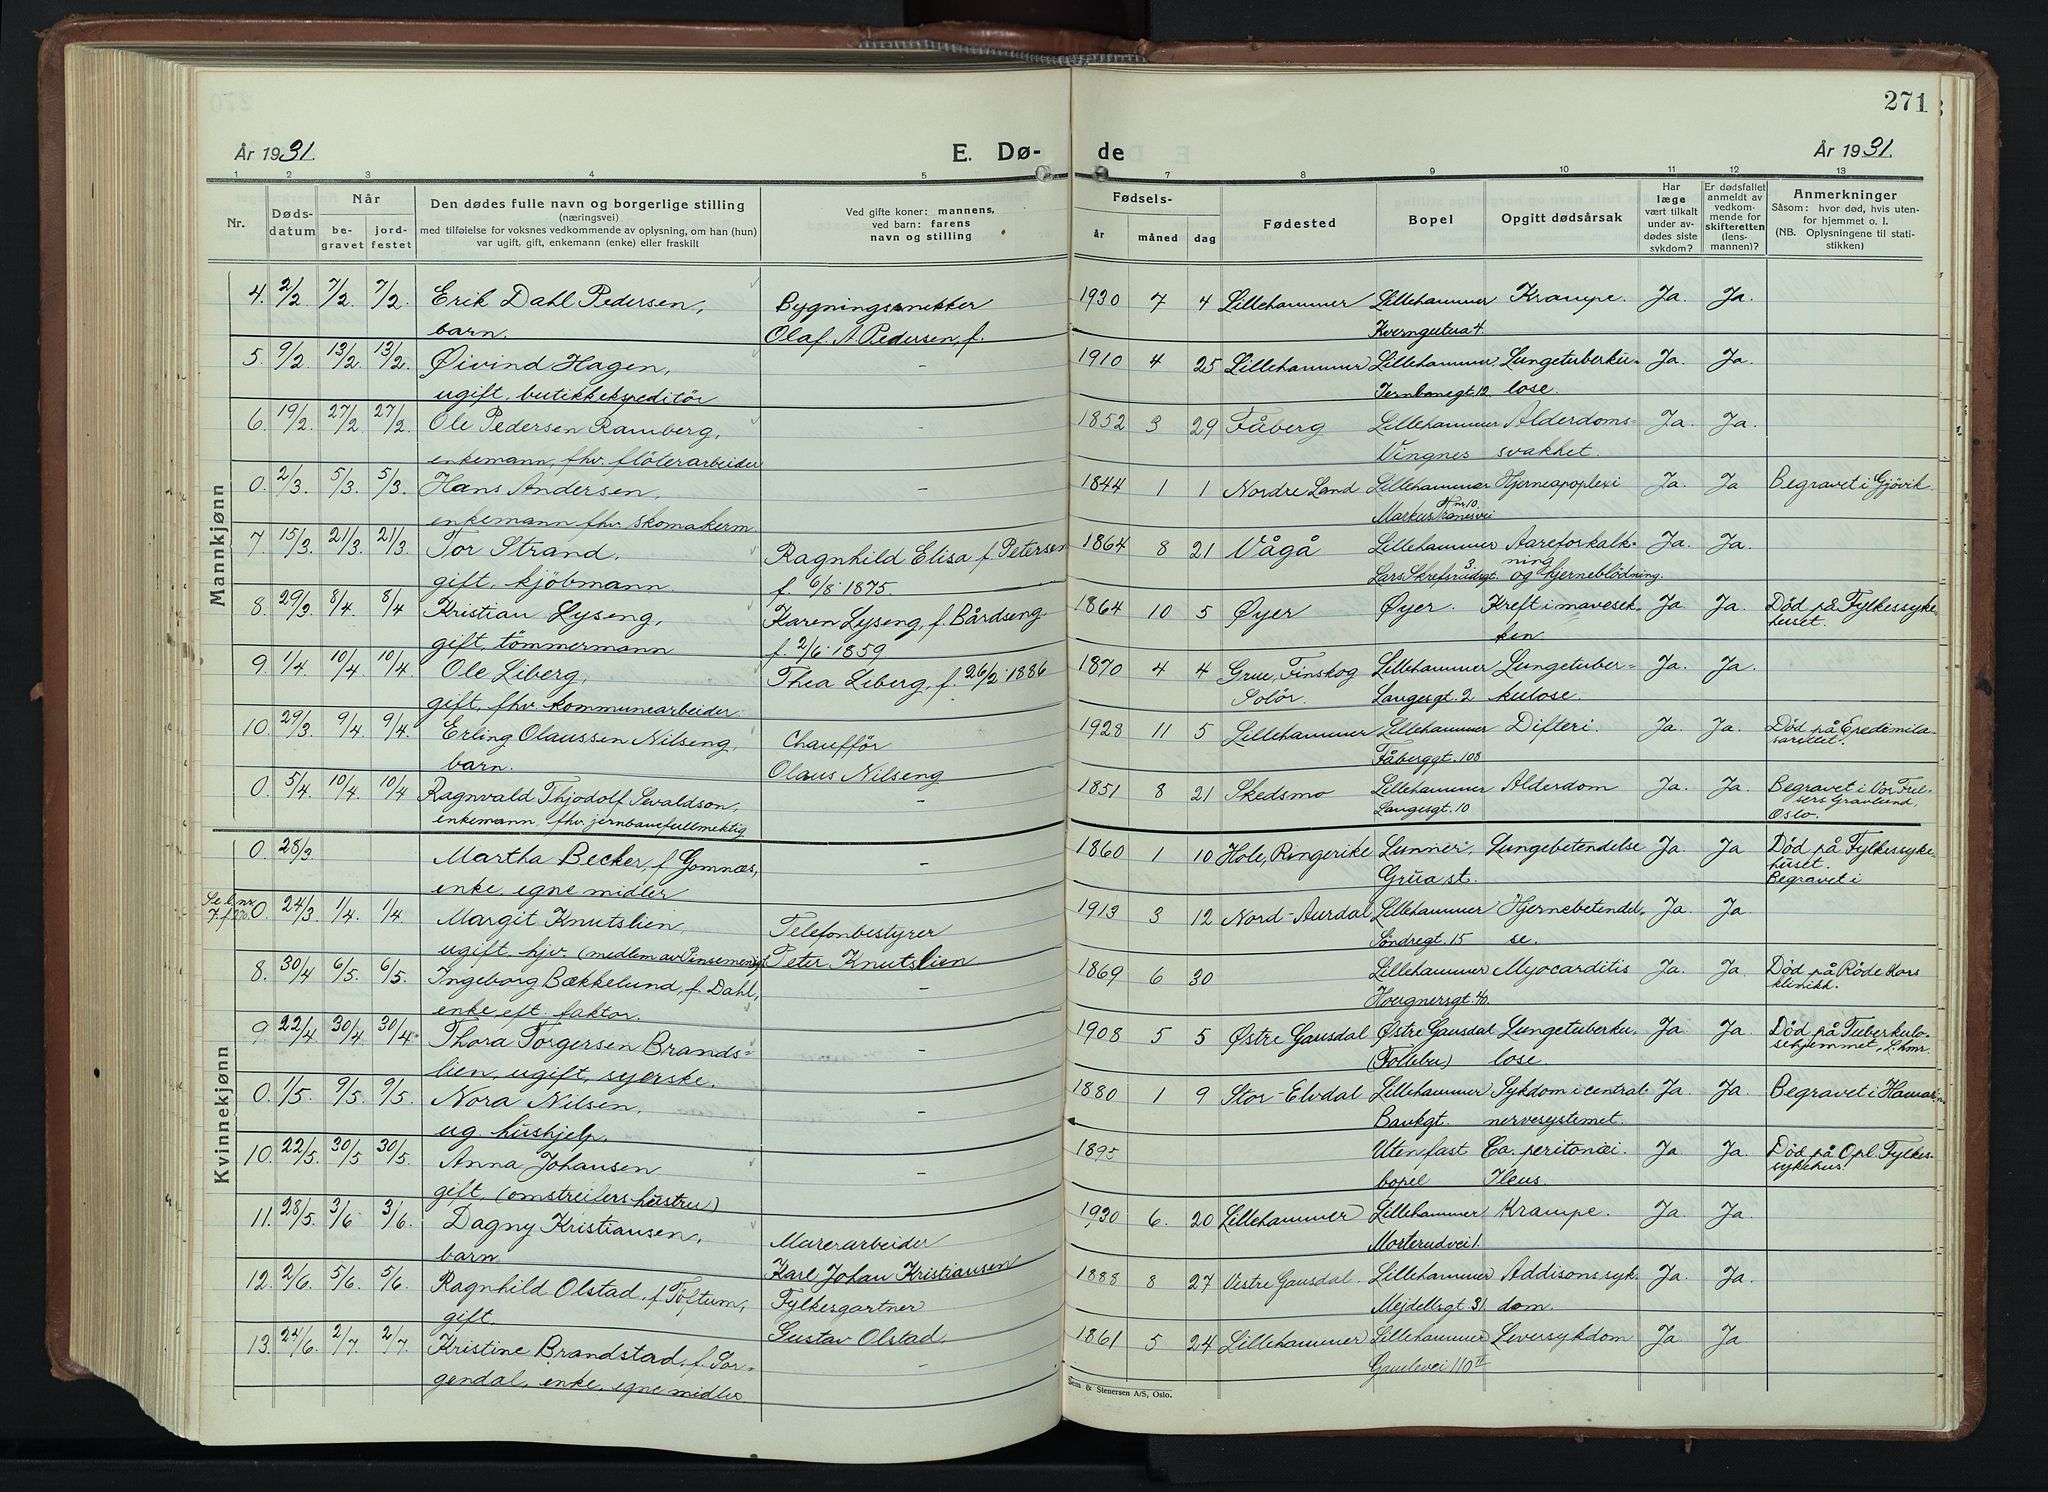 270
271
År 1931.
E. Dø-
de
År 1931.
1 2 3 4 5 7 8 9 10 11 12 13
Nr.
Døds-
datum
Når
be-
gravet
jord-
festet
Den dødes fulle navn og borgerlige stilling
(næringsvei)
med tilføielse for voksnes vedkommende av oplysning, om han (hun)
var ugift, gift, enkemann (enke) eller fraskilt
Ved gifte koner: mannens,
ved barn: farens
navn og stilling
Fødsels-
år
måned
dag
Fødested
Bopel
Opgitt dødsårsak
Har
læge
vært tilkalt
under av-
dødes siste
sykdom?
Er dødsfallet
anmeldt av
vedkom-
mende for
skifteretten
(lens-
mannen)?
Anmerkninger
Såsom: hvor død, hvis uten-
for hjemmet o. l.
(NB. Oplysningene til stati-
stikken)
Mannkjønn
4. 2/2 7/2 7/2. Erik Dahl Pedersen, Bygningssnekker 1930 7 4 Lillehammer Lillehammer Krampe. Ja. Ja.
barn. Olaf A. Pedersen, f. Kverngutua 4.
5. 9/2 13/2 13/2. Øivind Hagen, - 1910 4 25 Lillehammer Lillehammer. Lungetuberku- Ja. Ja.
ugift, butikkekspeditör Jernbanegt. 12 lose.
6. 19/2 27/2 27/2 Ole Pedersen Ramberg, - 1852 3 29 Fåberg Lillehammer Alderdoms- Ja. Ja.
enkemann, fhv. flöterarbeider Vingnes svakhet.
0. 2/3. 5/3. 5/3. Hans Andersen, - 1844 1 1 Nordre Land Lillehammer Hjerneapoplexi Ja. Ja Begravet i Gjövik.
enkemann fhv. skomakerm. Markus Tranesvei nr 10.
7. 15/3 21/3 21/3 Tor Strand, Ragnhild Elisa f. Petersen 1864 8 21 Vågå Lillehammer Aareforkalk- Ja. Ja.
gift, kjöbmann. f. 6/8 1875 Lars Skrefsrudsgt. 3. ning og hjerneblödning.
8. 29/3 8/4 8/4 Kristian Lyseng, Karen Lyseng, f. Bårdseng 1864 10 5 Øyer Øyer. Kreft i mavesek- Ja. Ja. Död på Fylkessyke-
gift, tömmermann f. 2/6 1859 ken huset.
9 1/4 10/4 10/4. Ole Liberg, Thea Liberg, f. 26/2 1886 1870 4 4 Grue, Finskog Lillehammer Lungetuber- Ja. Ja.
gift, fhv. kommunearbeider. Solör. Langesgt. 2 kulose.
10. 29/3 9/4 9/4. Erling Olaussen Nilseng, Chaufför 1928 11 5 Lillehammer Lillehammer Difteri. Ja. Ja. Död på Epedemila-
barn. Olaus Nilseng Fåberggt. 108 sarettet.
0. 5/4. 10/4. 10/4 Ragnvald Thjodolf Sevaldson, - 1851 8 21 Skedsmo Lillehammer Alderdom Ja. Ja. Begravet i Vår Frel-
enkemann, fhv. jernbanefullmektig Langesgt. 10 sers Gravlund,
Oslo.
Kvinnekjønn
0. 28/3 Martha Becker, f. Gomnæs, - 1860 1 10 Hole, Ringerike Lunner, Lungebetendelse Ja. Ja Död på Fylkessyke-
enke, egne midler Grua st. huset.
Begravet i
Se l. nr
7. f. 270. 0. 24/3 1/4. 1/4. Margit Knutslien, Telefonbestyrer 1913 3 12 Nord-Aurdal Lillehammer Hjernebetendel- Ja. Ja
ugift, hjv. (medlem av Pinsemenigh. Peter Knutslien Söndregt. 15 se.
8. 30/4 6/5 6/5. Ingeborg Bækkelund, f. Dahl, - 1869 6 30 Lillehammer Myocarditis Ja. Ja. Död på Röde Kors
enke eft. faktor. Hougnersgt. 40. klinikk.
9 22/4 30/4 30/4. Thora Torgersen Brands- - 1908 5 5 Østre Gausdal Østre Gausdal Lungetuberku- Ja Ja Död på Tuberkulo-
lien, ugift, syerske. (Follebu) lose. sehjemmet, L.hmr.
0. 1/5. 9/5. 9/5. Nora Nilsen, - 1880 1 9 Stor-Elvdal Lillehammer Sykdom i central- Ja Ja Begravet i Hamar.
ug. hushjelp. Bankgt. nervesystemet.
10. 22/5. 30/5 30/5. Anna Johansen - 1895 Uten fast Ca. peritonæi. Ja. Ja. Död på Opl. Fylkes-
gift, (omstreifers hustru) bopel Ileus sykehus.
11. 28/5. 3/6 3/6. Dagny Kristiansen, Murerarbeider 1930 6. 20 Lillehammer Lillehammer Krampe. Ja. Ja.
barn. Karl Johan Kristiansen Morterudvei 1.
12. 2/6. 5/6. 5/6. Ragnhild Olstad, f. Töftum, Fylkesgartner 1888 8 27 Vestre Gausdal. Lillehammer Addisons syk- Ja. Ja.
gift. Gustav Olstad. Mejdellsgt. 31 dom.
13. 24/6 2/7. 2/7. Kristine Brandstad, f. Sor- - 1861 5 24 Lillehammer Lillehammer Leversykdom Ja Ja
gendal, enke, egne midler Gamlevei 110 II
Sem & Stenersen A/S, Oslo.